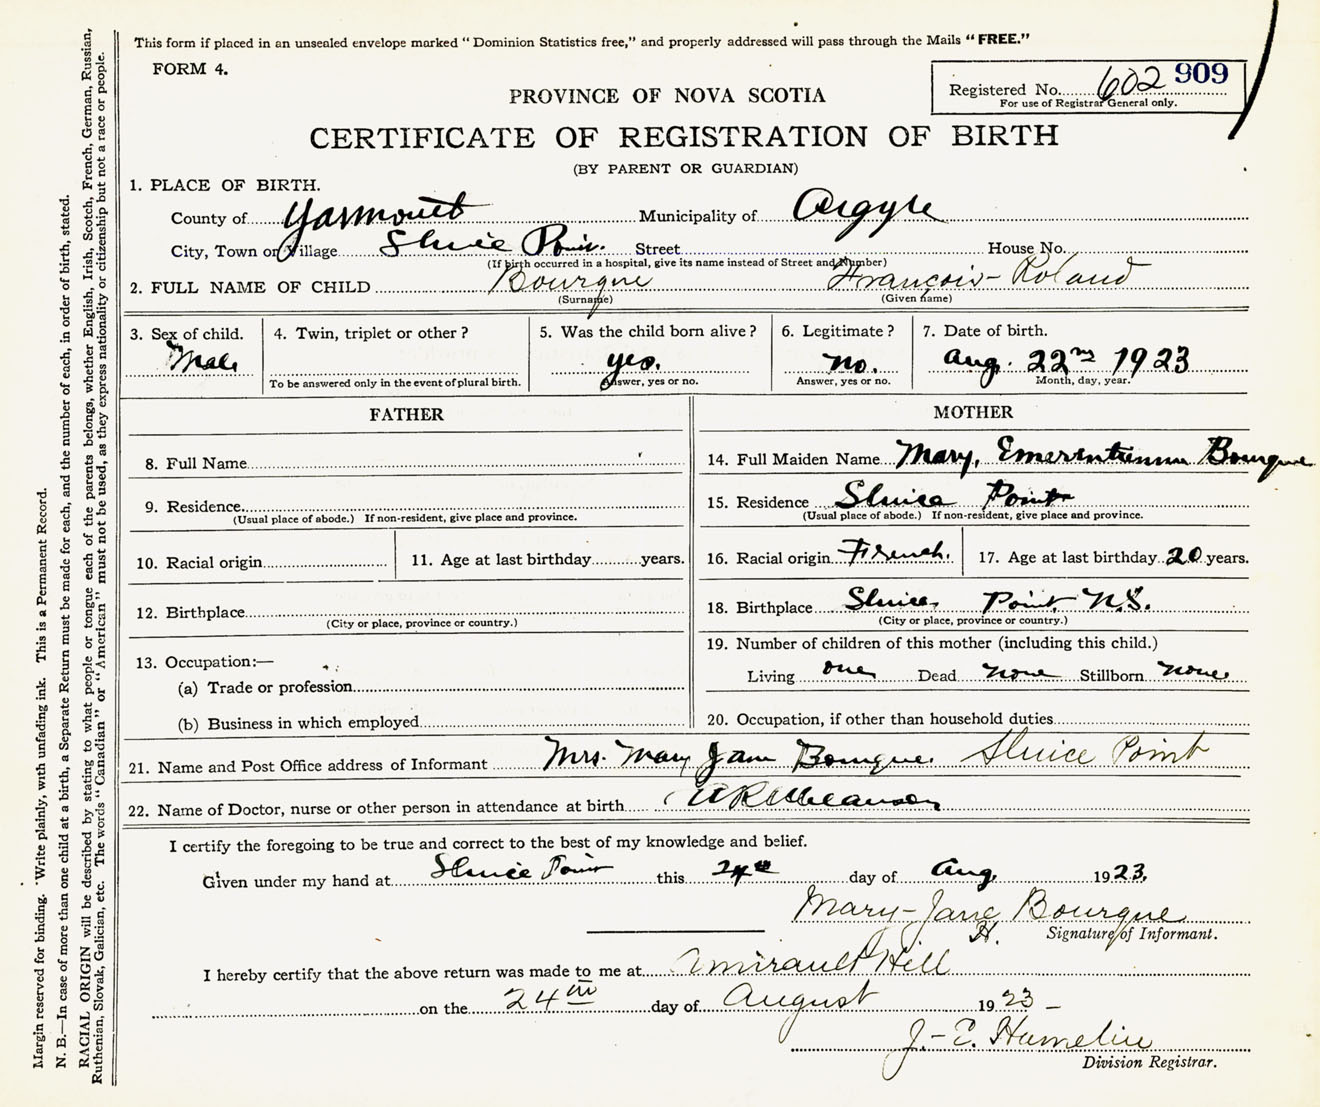 This form if placed in an unsealed envelope marked "Dominion Statistics free," and properly addressed will pass through the Mails "FREE."
FORM 4.
Registered No. 602 909
For use of Registrar General only.
PROVINCE OF NOVA SCOTIA
CERTIFICATE OF REGISTRATION OF BIRTH
(BY PARENT OR GUARDIAN)
1. PLACE OF BIRTH.
County of Yarmouth Municipality of Argyle
City, Town or Village Sluice Poin. Street House No.
(If birth occurred in a hospital, give its name instead of Street and Number)
2. FULL NAME OF CHILD Bourque François-Roland
(Surname) (Given name)
3. Sex of child. 4. Twin, triplet or other? 5. Was the child born alive? 6. Legitimate? 7. Date of birth.
Male yes. no. Aug. 22nd 1923
To be answered only in the event of plural birth. Answer, yes or no. Answer, yes or no. Month, day, year.
FATHER
8. Full Name
9. Residence
(Usual place of abode.) If non-resident, give place and province.
10. Racial origin 11. Age at last birthday years.
12. Birthplace
(City or place, province or country.)
13. Occupation:—
(a) Trade or profession
(b) Business in which employed
MOTHER
14. Full Maiden Name Mary, Bourque
15. Residence Sluice Point
(Usual place of abode.) If non-resident, give place and province.
16. Racial origin French. 17. Age at last birthday 20 years.
18. Birthplace Sluice Point N.S.
(City or place, province or country.)
19. Number of children of this mother (including this child.)
Living one Dead none Stillborn none
20. Occupation, if other than household duties
21. Name and Post Office address of Informant Mrs. Mary Jane Bourque. Sluice Point
22. Name of Doctor, nurse or other person in attendance at birth
I certify the foregoing to be true and correct to the best of my knowledge and belief.
Given under my hand at Sluice Point this 24th day of Aug. 1923.
Mary-Jane Bourque
H. Signature of Informant.
I hereby certify that the above return was made to me at Amirault Hill
on the 24th day of August 1923 –
J.-E. Hamelin
Division Registrar.
Margin reserved for binding. Write plainly, with unfading ink. This is a Permanent Record.
N. B.—In case of more than one child at a birth, a Separate Return must be made for each, and the number of each, in order of birth, stated.
RACIAL ORIGIN will be described by stating to what people or tongue each of the parents belongs, whether English, Irish, Scotch, French, German, Russian,
Ruthenian, Slovak, Galician, etc. The words "Canadian" or "American" must not be used, as they express nationality or citizenship but not a race or people.